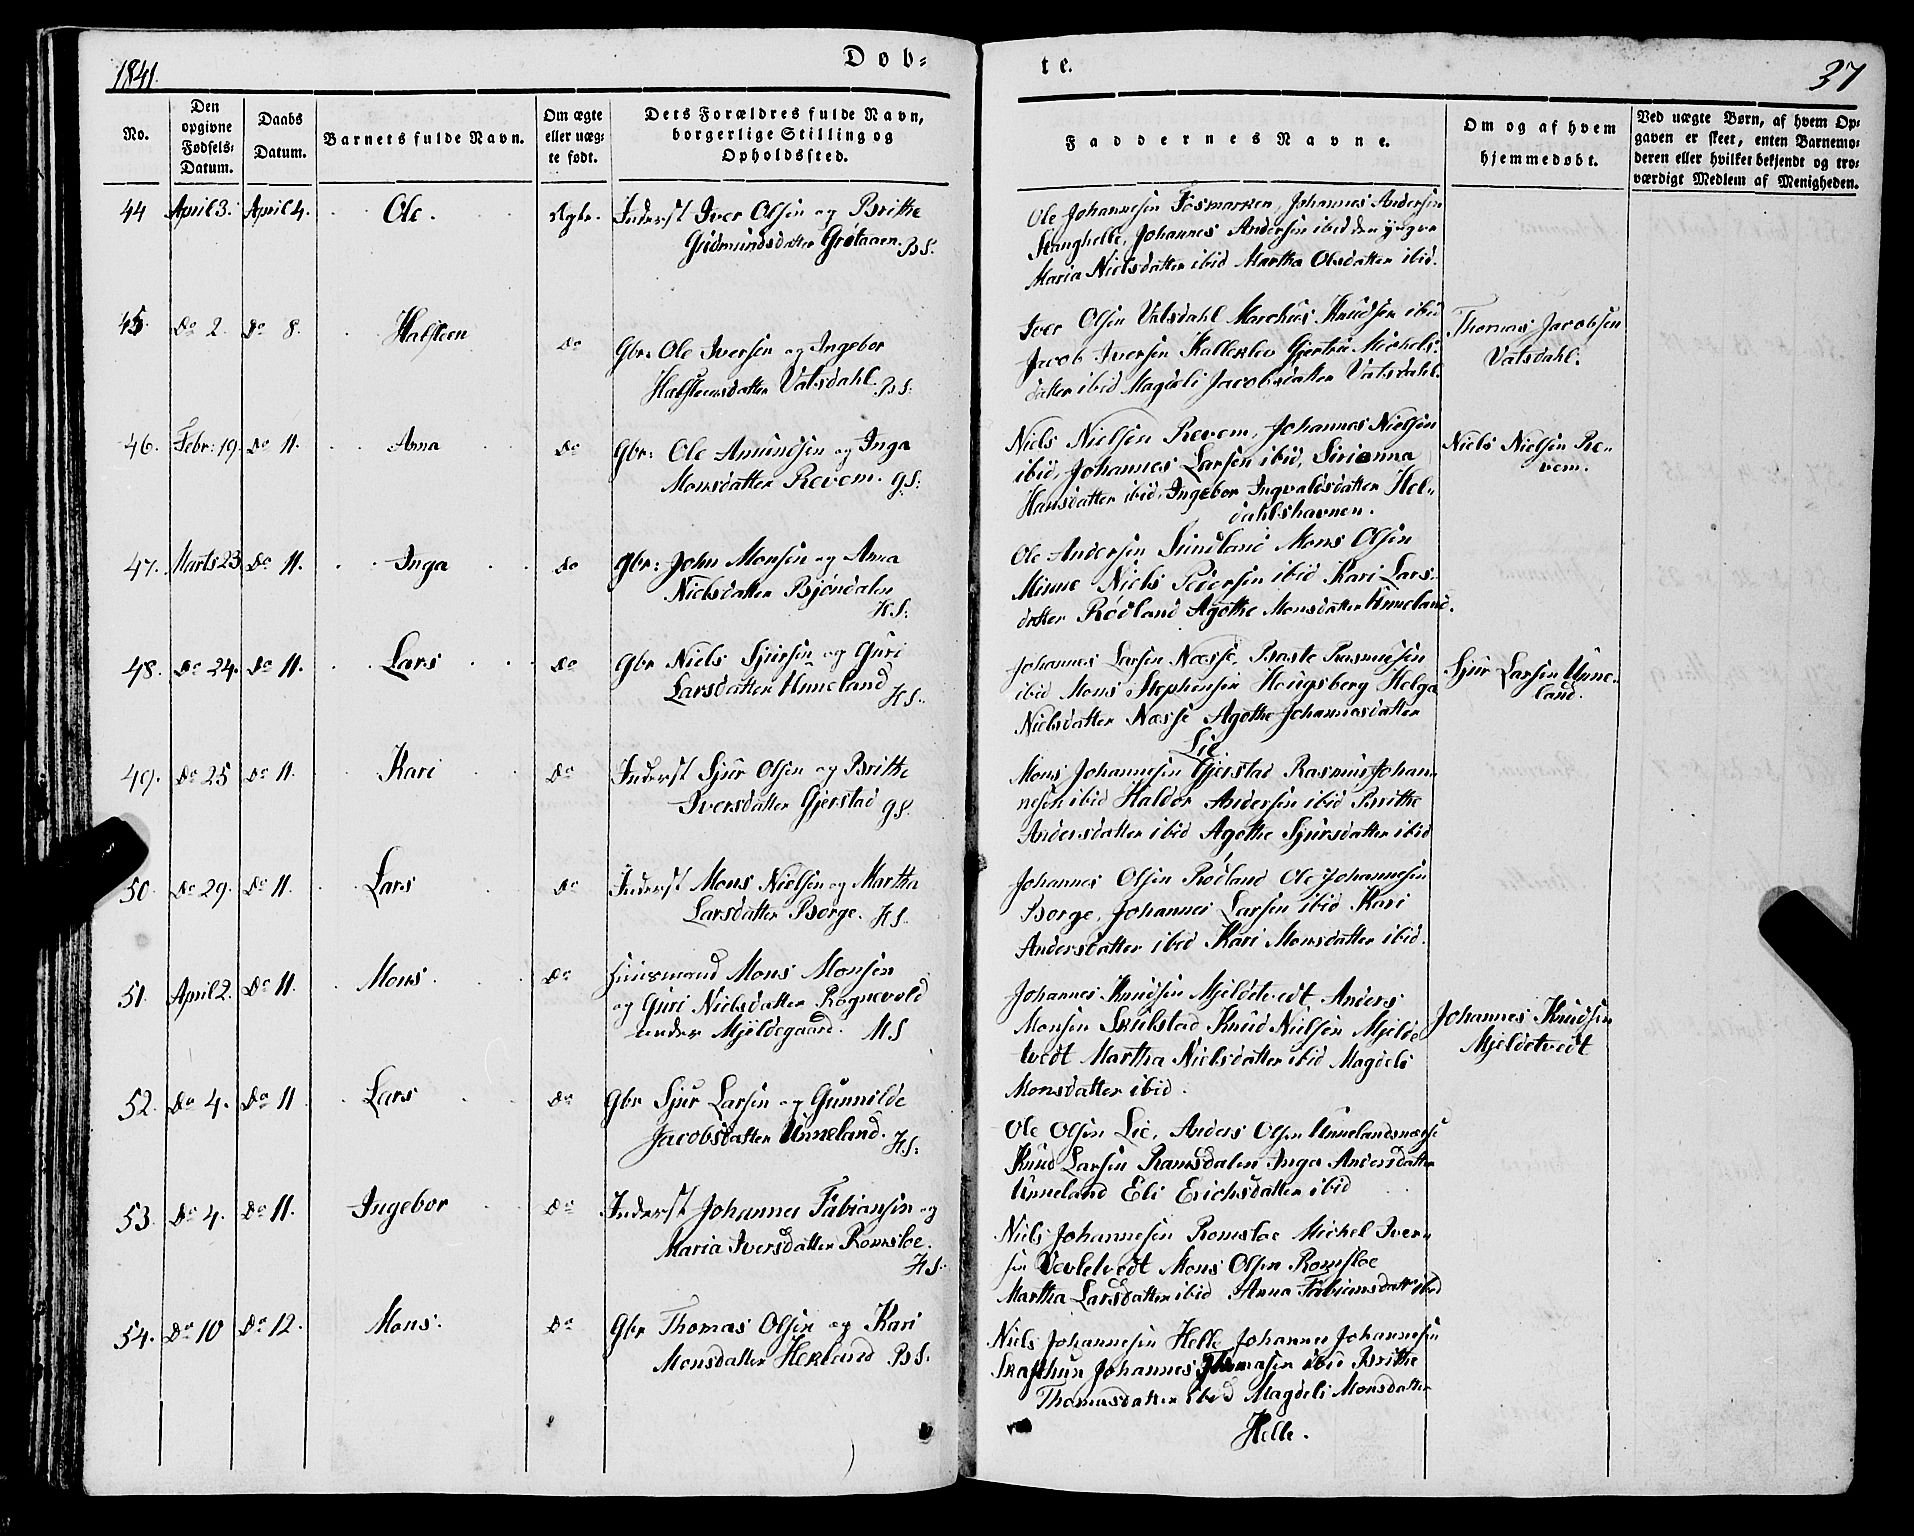 1841.
Døb-
te.
37
No.
Den opgivne Fødsels-Datum.
Daabs Datum.
Barnets fulde Navn.
Om ægte eller uæg-te født.
Dets Forældres fulde Navn, borgerlige Stilling og Opholdssted.
Faddernes Navne.
Om og af hvem hjemmedøbt.
Ved uægte Børn, af hvem Op-gaven er skeet, enten Barnemo-deren eller hvilket bekjendt og tro-værdigt Medlem af Menigheden.
44 April 3. April 4. Ole. Ægte. Inderst Iver Olsen og Brithe
Gudmundsdatter Grøtaaen. BS.
Ole Johannesen Fosmarken, Johannes Andersen
Stanghelle, Johannes Andersen ibid den yngre
Maria Nielsdatter ibid Martha Olsdatter ibid.
45. Do 2. Do 8. Halsteen Do Gbr: Ole Iversen og Ingebor
Halsteensdatter Vatsdahl. BS:
Iver Olsen Vatsdahl Marchus Knudsen ibid
Jacob Iversen Kalleklev Gjertru Michels-
datter ibid Magdeli Jacobsdatter Vatsdahl.
Thomas Jacobsen
Vatsdahl.
46. Febr: 19. Do 11. Anna Do Gbr: Ole Amundsen og Inga
Monsdatter Revem. GS:
Niels Nielsen Revem, Johannes Nielsen
ibid, Johannes Larsen ibid, Sirianna
Hansdatter ibid, Ingebor Ingvaldsdatter Hel-
dahlshavnen.
Niels Nielsen Re-
vem.
47. Marts 23 Do 11. Inga Do Gbr: John Monsen og Anna
Nielsdatter Bjøndalen
HS:
Ole Andersen Sundland Mons Olsen
Minne Niels Pedersen ibid Kari Lars-
datter Rødland Agothe Monsdatter Unneland.
48. Do 24. Do 11. Lars Do Gbr Niels Sjursen og Guri
Larsdatter Unneland HS.
Johannes Larsen Næsse, Baste Rasmusen
ibid Mons Stephensen Hougsberg Helga
Nielsdatter Næsse Agothe Johannesdatter
Lie
Sjur Larsen Unne-
land.
49. Do 25 Do 11. Kari Do Inderst Sjur Olsen og Brithe
Iversdatter Gjerstad GS.
Mons Johannesen Gjerstad Rasmus Johan-
nesen ibid Haldor Andersen ibid Brithe
Andersdatter ibid Agothe Sjursdatter ibid
50. Do 29. Do 11. Lars Do Inderst Mons Nielsen og Martha
Larsdatter Borge. HS.
Johannes Olsen Rødland Ole Johannesen
Borge, Johannes Larsen ibid Kari
Andersdatter ibid Kari Monsdatter ibid.
51. April 2. Do 11. Mons. Do Huusmand Mons Monsen
og Guri Nielsdatter Rognevold
under Mjeldegaard. MS
Johannes Knudsen Mjeldetvedt Anders
Monsen Knud Nielsen Mjelde
tvedt Martha Nielsdatter ibid Magdeli
Monsdatter ibid.
Johannes Knudsen
Mjeldetvedt
52. Do 4. Do 11 Lars Do Gbr Sjur Larsen og Gunnilde
Jacobsdatter Unneland. HS:
Ole Olsen Lie, Anders Olsen Unnelandsnæsse
Knud Larsen Ramsdalen Inga Andersdatter
Unneland Eli Erichsdatter ibid
53. Do 4. Do 11. Ingebor Do Inderst Johannes Fabiansen og
Maria Iversdatter Romsloe.
HS.
Niels Johannesen Romsloe Michel Iver-
sen Vevletvedt Mons Olsen Romsloe
Martha Larsdatter ibid Anna Fabiansdatt ibid
54. Do 10 Do 12. Mons. Do Gbr Thomas Olsen og Kari
Monsdatter Herland BS.
Niels Johannesen Helle Johannes Johannesen
Skafthun Johannes Thomasen ibid Brithe
Thomasdatter ibid Magdeli Monsdatter
Helle.